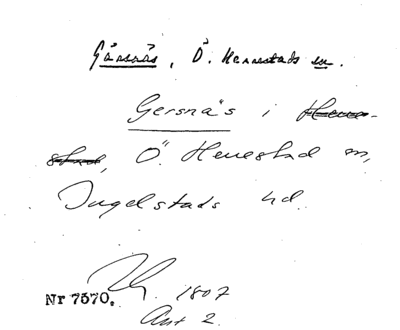 Gärsnäs, Ö. Herrestads sn.
Gersnäs i
Ö. Herrestad sn,
Ingelstads hd.
Nr 7570. 1807
Akt 2.